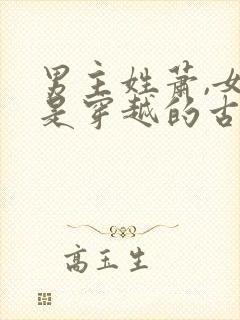 男主姓萧,女
是穿越的古
高玉生